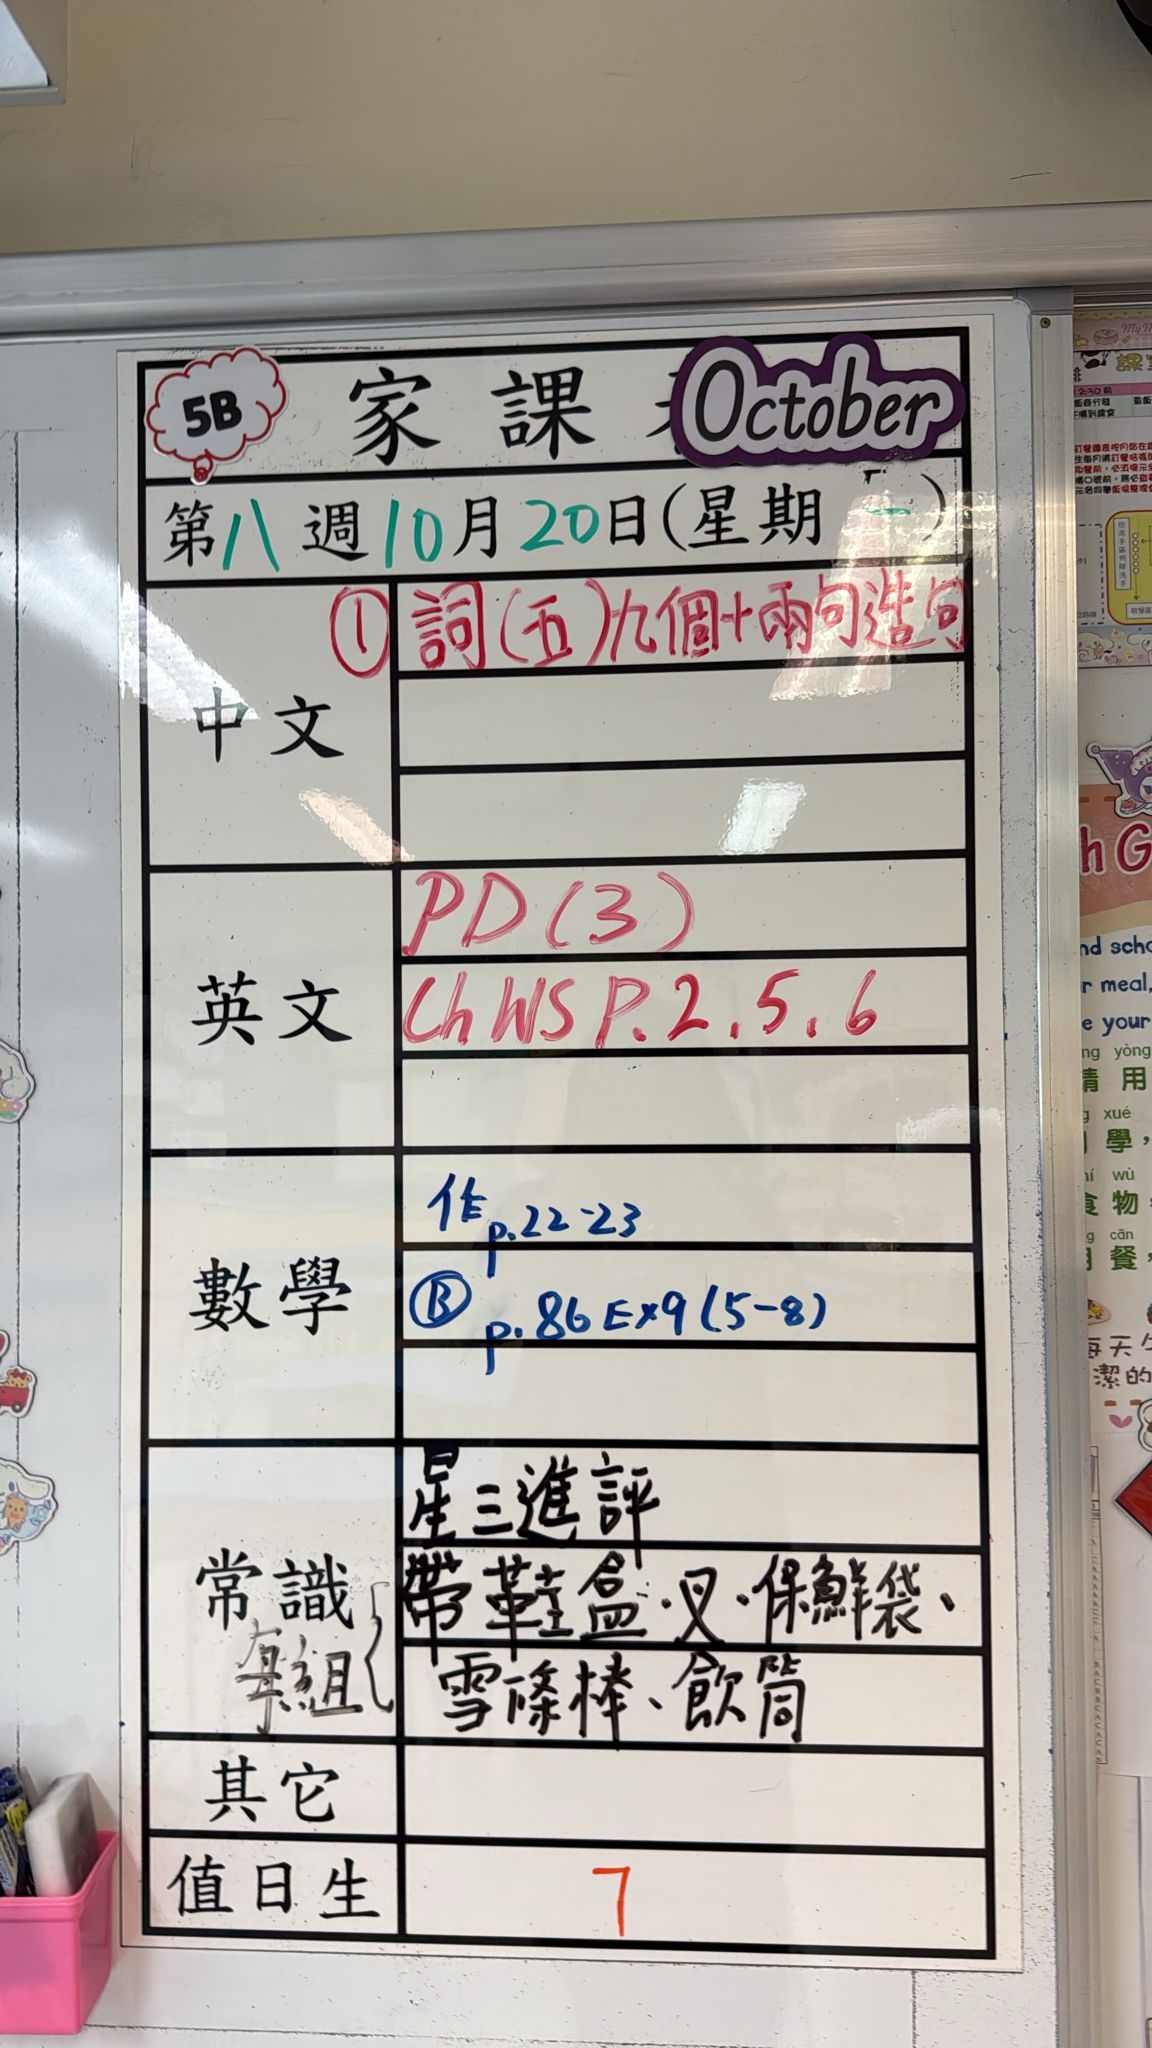 5B
家課
October
第八週10月20日(星期一)
中文
① 詞(五)九個+兩句造句
英文
PD(3)
Ch WS P.2.5.6
數學
作 p.22-23
Ⓑ p.86 Ex9(5-8)
常識
每組
星三進評
帶鞋盒、叉、保鮮袋、
雪條棒、飲筒
其它
值日生
7
課
2:30前
hG
nd scho
r meal,
e your
ng yòng
請用
xué
學,
wù
食物
cān
用餐,
每天
潔的